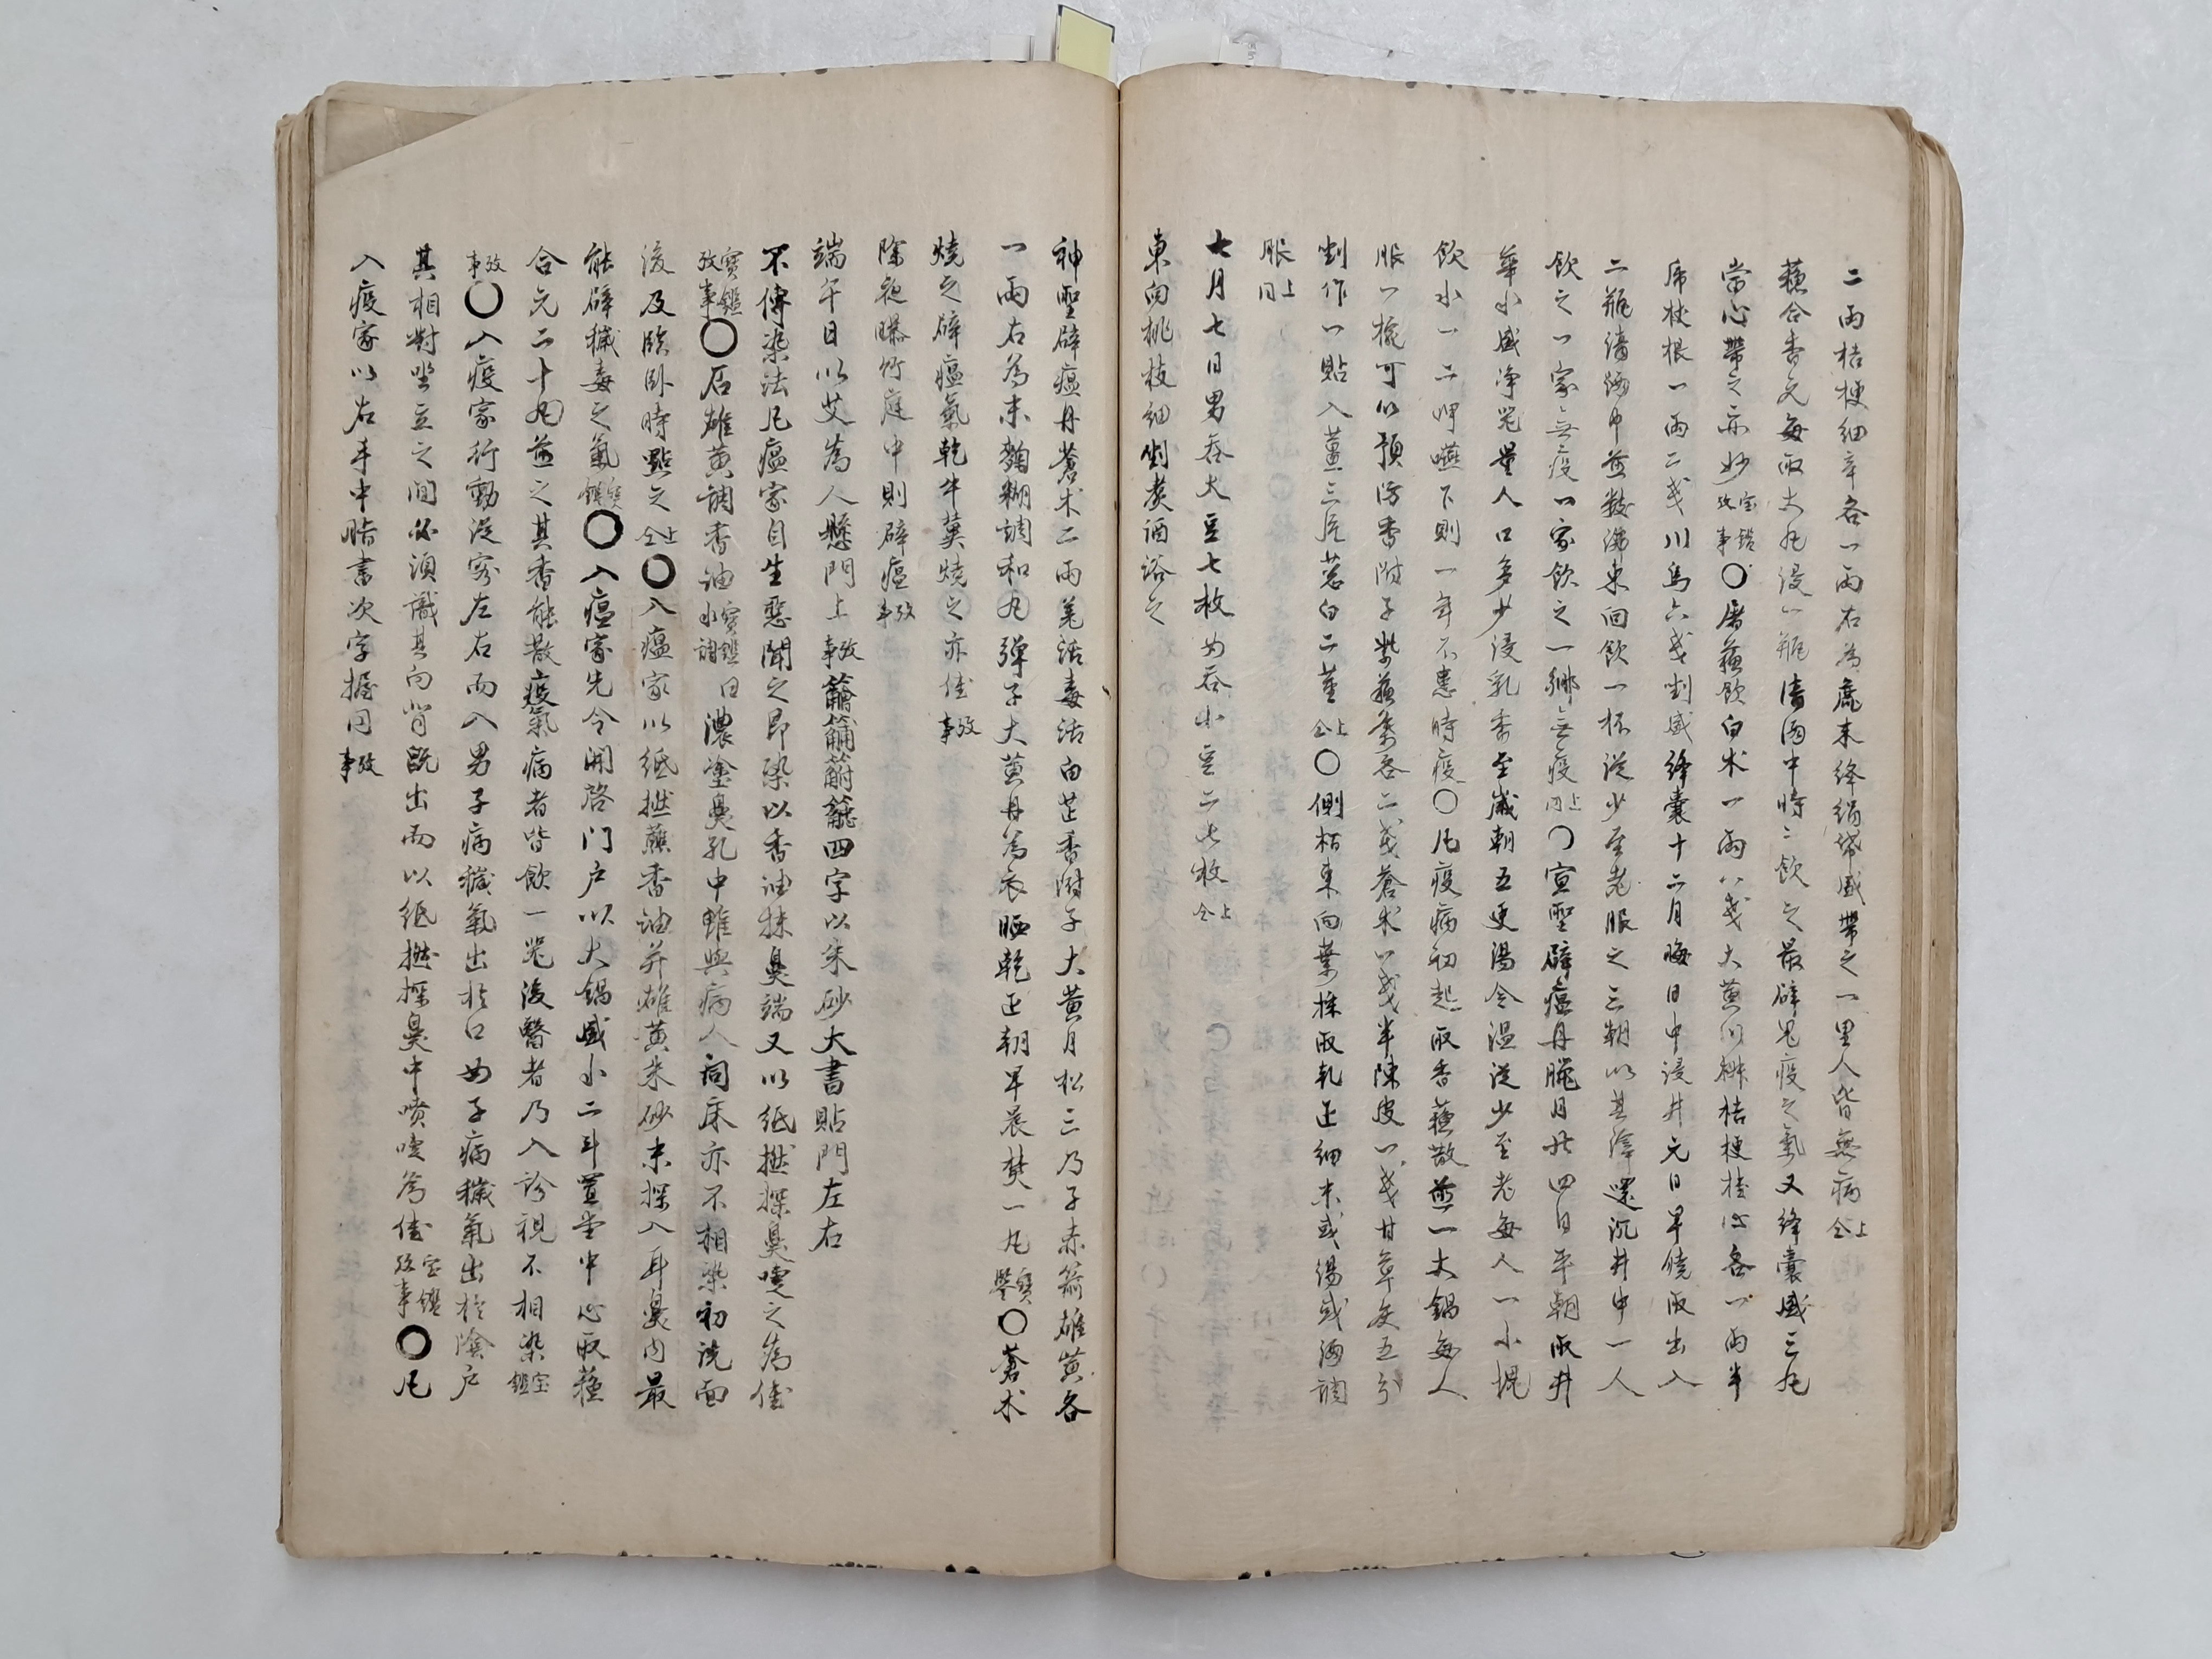 二兩桔梗細辛各一兩右為麁末絳絹帒盛帶之一里人皆無病仝上
蘓合香元每取大丸浸一瓶淸酒中時〻飮之最辟鬼疫之氣又絳囊盛三丸
當心帶之亦妙宝鑑攷事〇屠蘓飮白朮一兩八戔大黃川椒桔梗桂心各一兩半
虎杖根一兩二戔川烏六戔剉盛絳囊十二月晦日中浸井元日早曉取出入
二瓶淸酒中煎數沸東向飮一杯從少至老服之三朝以其滓還沉井中一人
飮之一家無疫一家飮之一鄕無疫仝上〇宣聖辟瘟丹臘月廿四日平朝取井
華水盛净器量人口多少浸乳香至歲朝五更湯令溫從少至老每人一小塊
飮水一二呷嚥下則一年不患時疫〇凡疫病初起取香蘓散煎一大鍋每人
服一椀可以預防香附子紫蘓葉各二戔蒼朮一戔半陳皮一戔甘草灸五分
剉作一貼入薑三片葱白二莖仝上〇側栢東向葉採取乹正細末或湯或酒調
服仝上
七月七日男吞大豆七枚女吞小豆二七枚仝上
東向桃枝細剉煑酒浴之
神聖辟瘟丹蒼朮二兩羌活毒活白芷香附子大黃月松三乃子赤箭雄黃各
一兩右為末麵糊調和丸彈子大黃丹為衣晒乾正朝早晨焚一丸寶鑑〇蒼朮
燒之辟瘟氣乾牛糞燒之亦佳攷事
除夜曝竹庭中則辟瘟攷事
端午日以艾為人懸門上攷事籥䉤䈽䉶四字以朱砂大書貼門左右
不傳染法凡瘟家自生惡聞之卽染以香油抹臭端又以紙撚探鼻嚏之為佳
寶鑑攷事〇石雄黃調香油寶鑑曰水調濃塗鼻孔中雖與病人同床亦不相染初洗面
後及臨卧時點之仝上〇入瘟家以紙撚蘸香油并雄黃朱砂末探入耳鼻內最
能辟穢毒之氣寶鑑〇入瘟家先令開啓门户以大鍋盛水二斗置堂中心取蘓
合元二十丸煎之其香能散疫氣病者皆飮一器後醫者乃入診視不相染宝鑑
攷事〇入疫家行動從容左右而入男子病穢氣出於口女子病穢氣出於陰户
其相對坐立之間必須識其向背旣出而以紙撚探鼻中噴嚏爲佳宝鑑攷事〇凡
入疫家以右手中脂書次字握固攷事